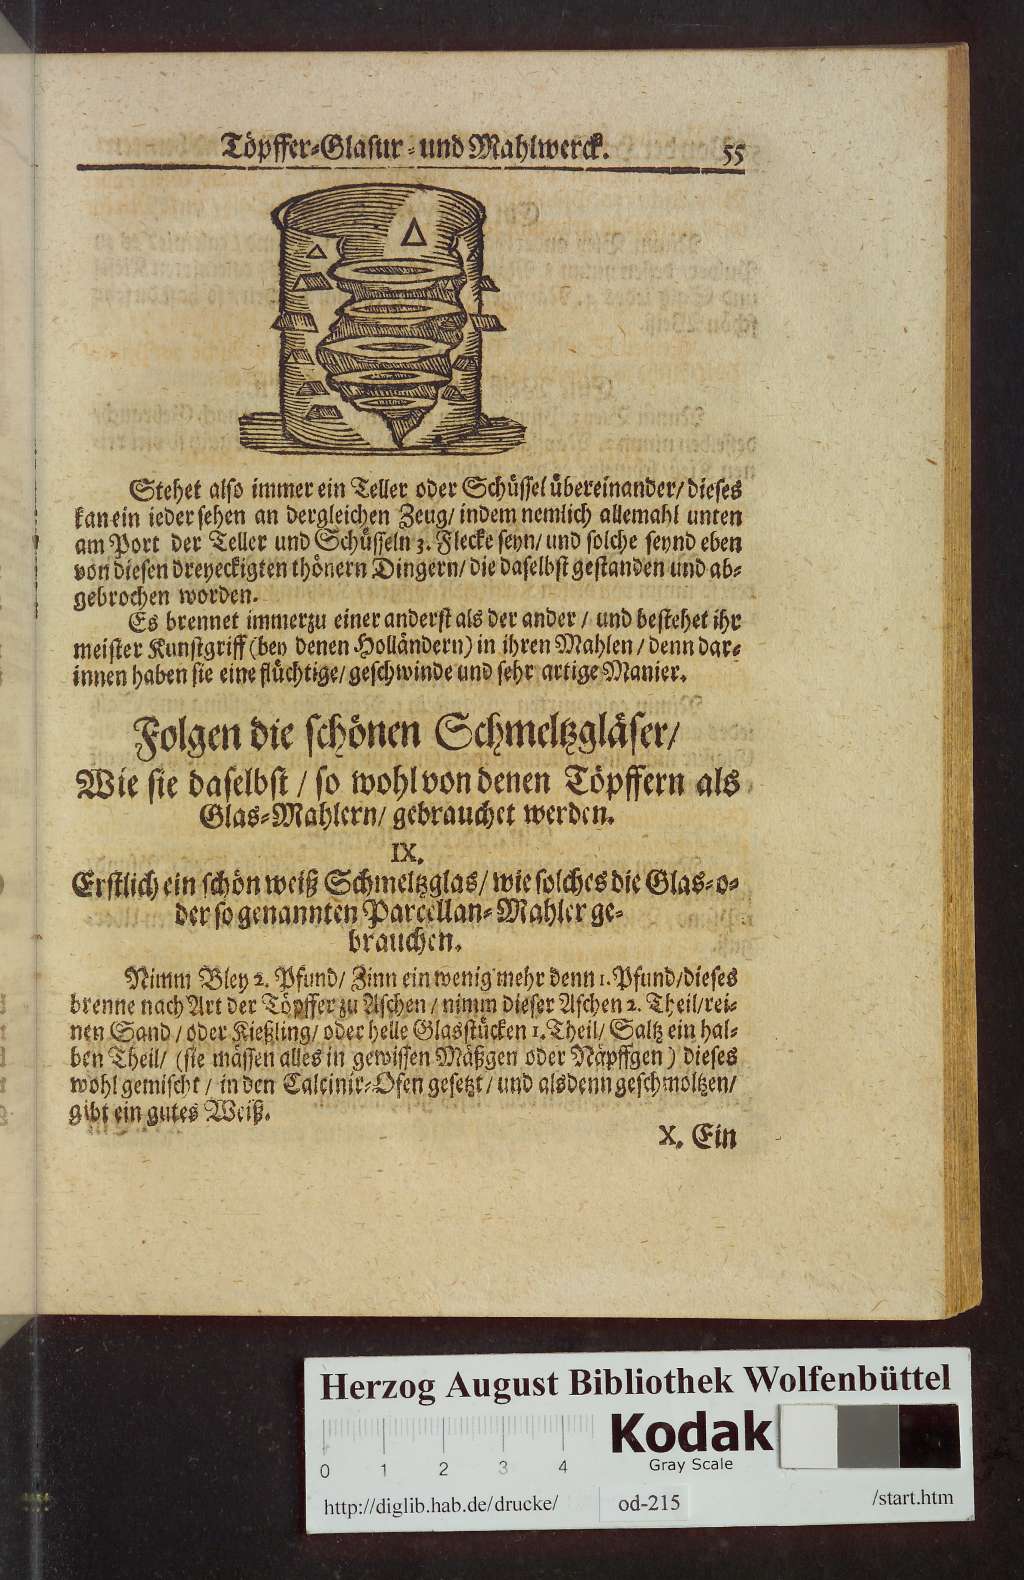 Töpffer-Glasur- und Mahlwerck. 55
Stehet also immer ein Teller oder Schüssel übereinander/ dieses
kan ein ieder sehen an dergleichen Zeug/ indem nemlich allemahl unten
am Port der Teller und Schüsseln 3. Flecke seyn/ und solche seynd eben
von diesen dreyeckigten thönern Dingern/ die daselbst gestanden und ab-
gebrochen worden.
Es brennet immerzu einer anderst als der ander / und bestehet ihr
meister Kunstgriff (bey denen Holländern) in ihren Mahlen / denn dar-
innen haben sie eine flüchtige/ geschwinde und sehr artige Manier.
Folgen die schönen Schmeltzgläser/
Wie sie daselbst / so wohl von denen Töpffern als
Glas-Mahlern/ gebrauchet werden.
IX.
Erstlich ein schön weiß Schmeltzglas/ wie solches die Glas- o-
der so genannten Parcellan-Mahler ge-
brauchen.
Nimm Bley 2. Pfund/ Zinn ein wenig mehr denn 1. Pfund/ dieses
brenne nach Art der Töpffer zu Aschen / nimm dieser Aschen 2. Theil/ rei-
nen Sand / oder Kießling/ oder helle Glasstücken 1. Theil/ Saltz ein hal-
ben Theil/ (sie mässen alles in gewissen Mäßgen oder Näpffgen) dieses
wohl gemischt / in den Calcinir-Ofen gesetzt / und alsdenn geschmoltzen/
gibt ein gutes Weiß.
X. Ein
Herzog August Bibliothek Wolfenbüttel
Kodak
Gray Scale
0 1 2 3 4
http://diglib.hab.de/drucke/ od-215 /start.htm